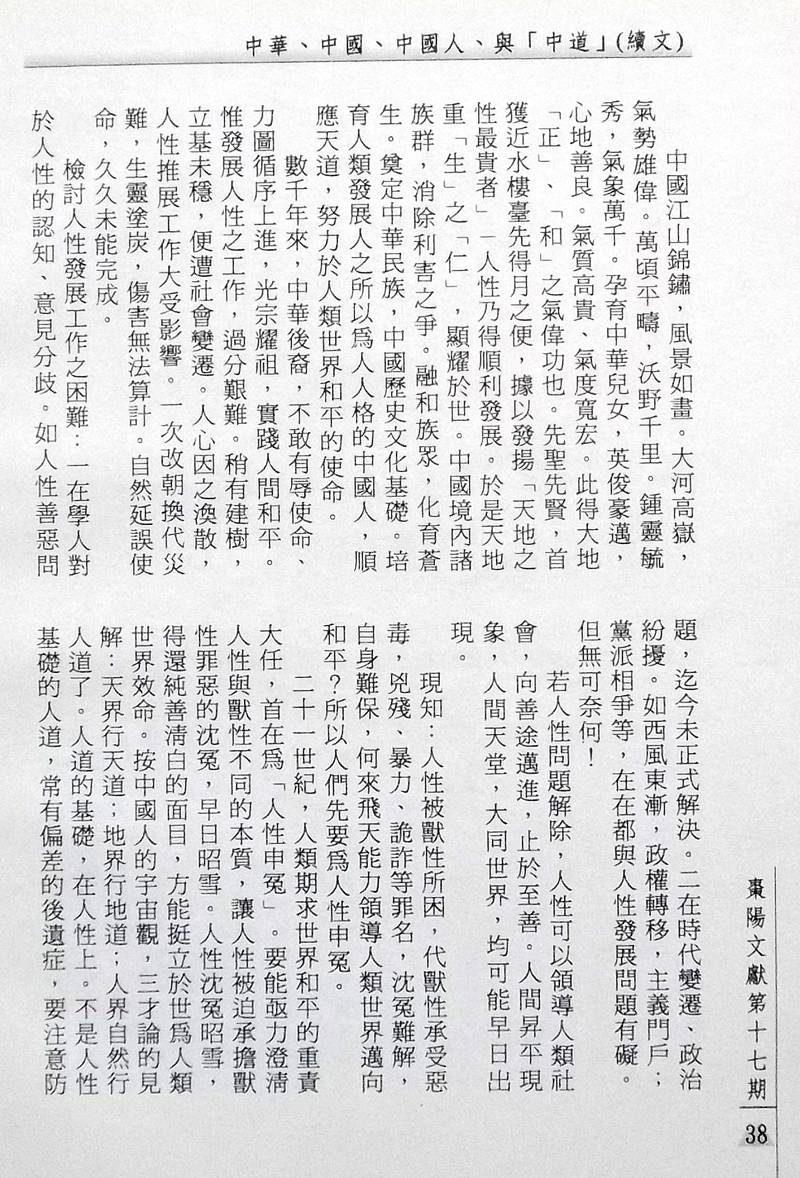 中華、中國、中國人、與「中道」(續文)
中國江山錦鏽，風景如畫。大河高嶽，
氣勢雄偉。萬頃平疇，沃野千里。鍾靈毓
秀，氣象萬千。孕育中華兒女，英俊豪邁，
心地善良。氣質高貴、氣度寬宏。此得大地
「正」、「和」之氣偉功也。先聖先賢，首
獲近水樓臺先得月之便，據以發揚「天地之
性最貴者」—人性乃得順利發展。於是天地
重「生」之「仁」，顯耀於世。中國境內諸
族群，消除利害之爭。融和族眾，化育蒼
生。奠定中華民族，中國歷史文化基礎。培
育人類發展人之所以爲人人格的中國人，順
應天道，努力於人類世界和平的使命。
數千年來，中華後裔，不敢有辱使命、
力圖循序上進，光宗耀祖，實踐人間和平。
惟發展人性之工作，過分艱難。稍有建樹，
立基未穩，便遭社會變遷。人心因之渙散，
人性推展工作大受影響。一次改朝換代災
難，生靈塗炭，傷害無法算計。自然延誤使
命，久久未能完成。
檢討人性發展工作之困難：一在學人對
於人性的認知、意見分歧。如人性善惡問
題，迄今未正式解決。二在時代變遷、政治
紛擾。如西風東漸，政權轉移，主義門戶；
黨派相爭等，在在都與人性發展問題有礙。
但無可奈何！
若人性問題解除，人性可以領導人類社
會，向善途邁進，止於至善。人間昇平現
象，人間天堂，大同世界，均可能早日出
現。
現知：人性被獸性所困，代獸性承受惡
毒，兇殘、暴力、詭詐等罪名，沈冤難解，
自身難保，何來飛天能力領導人類世界邁向
和平？所以人們先要爲人性申冤。
二十一世紀，人類期求世界和平的重責
大任，首在爲「人性申冤」。要能亟力澄清
人性與獸性不同的本質，讓人性被迫承擔獸
性罪惡的沈冤，早日昭雪。人性沈冤昭雪，
得還純善清白的面目，方能挺立於世爲人類
世界效命。按中國人的宇宙觀，三才論的見
解：天界行天道；地界行地道；人界自然行
人道了。人道的基礎，在人性上。不是人性
基礎的人道，常有偏差的後遺症，要注意防
棗陽文獻第十七期
38